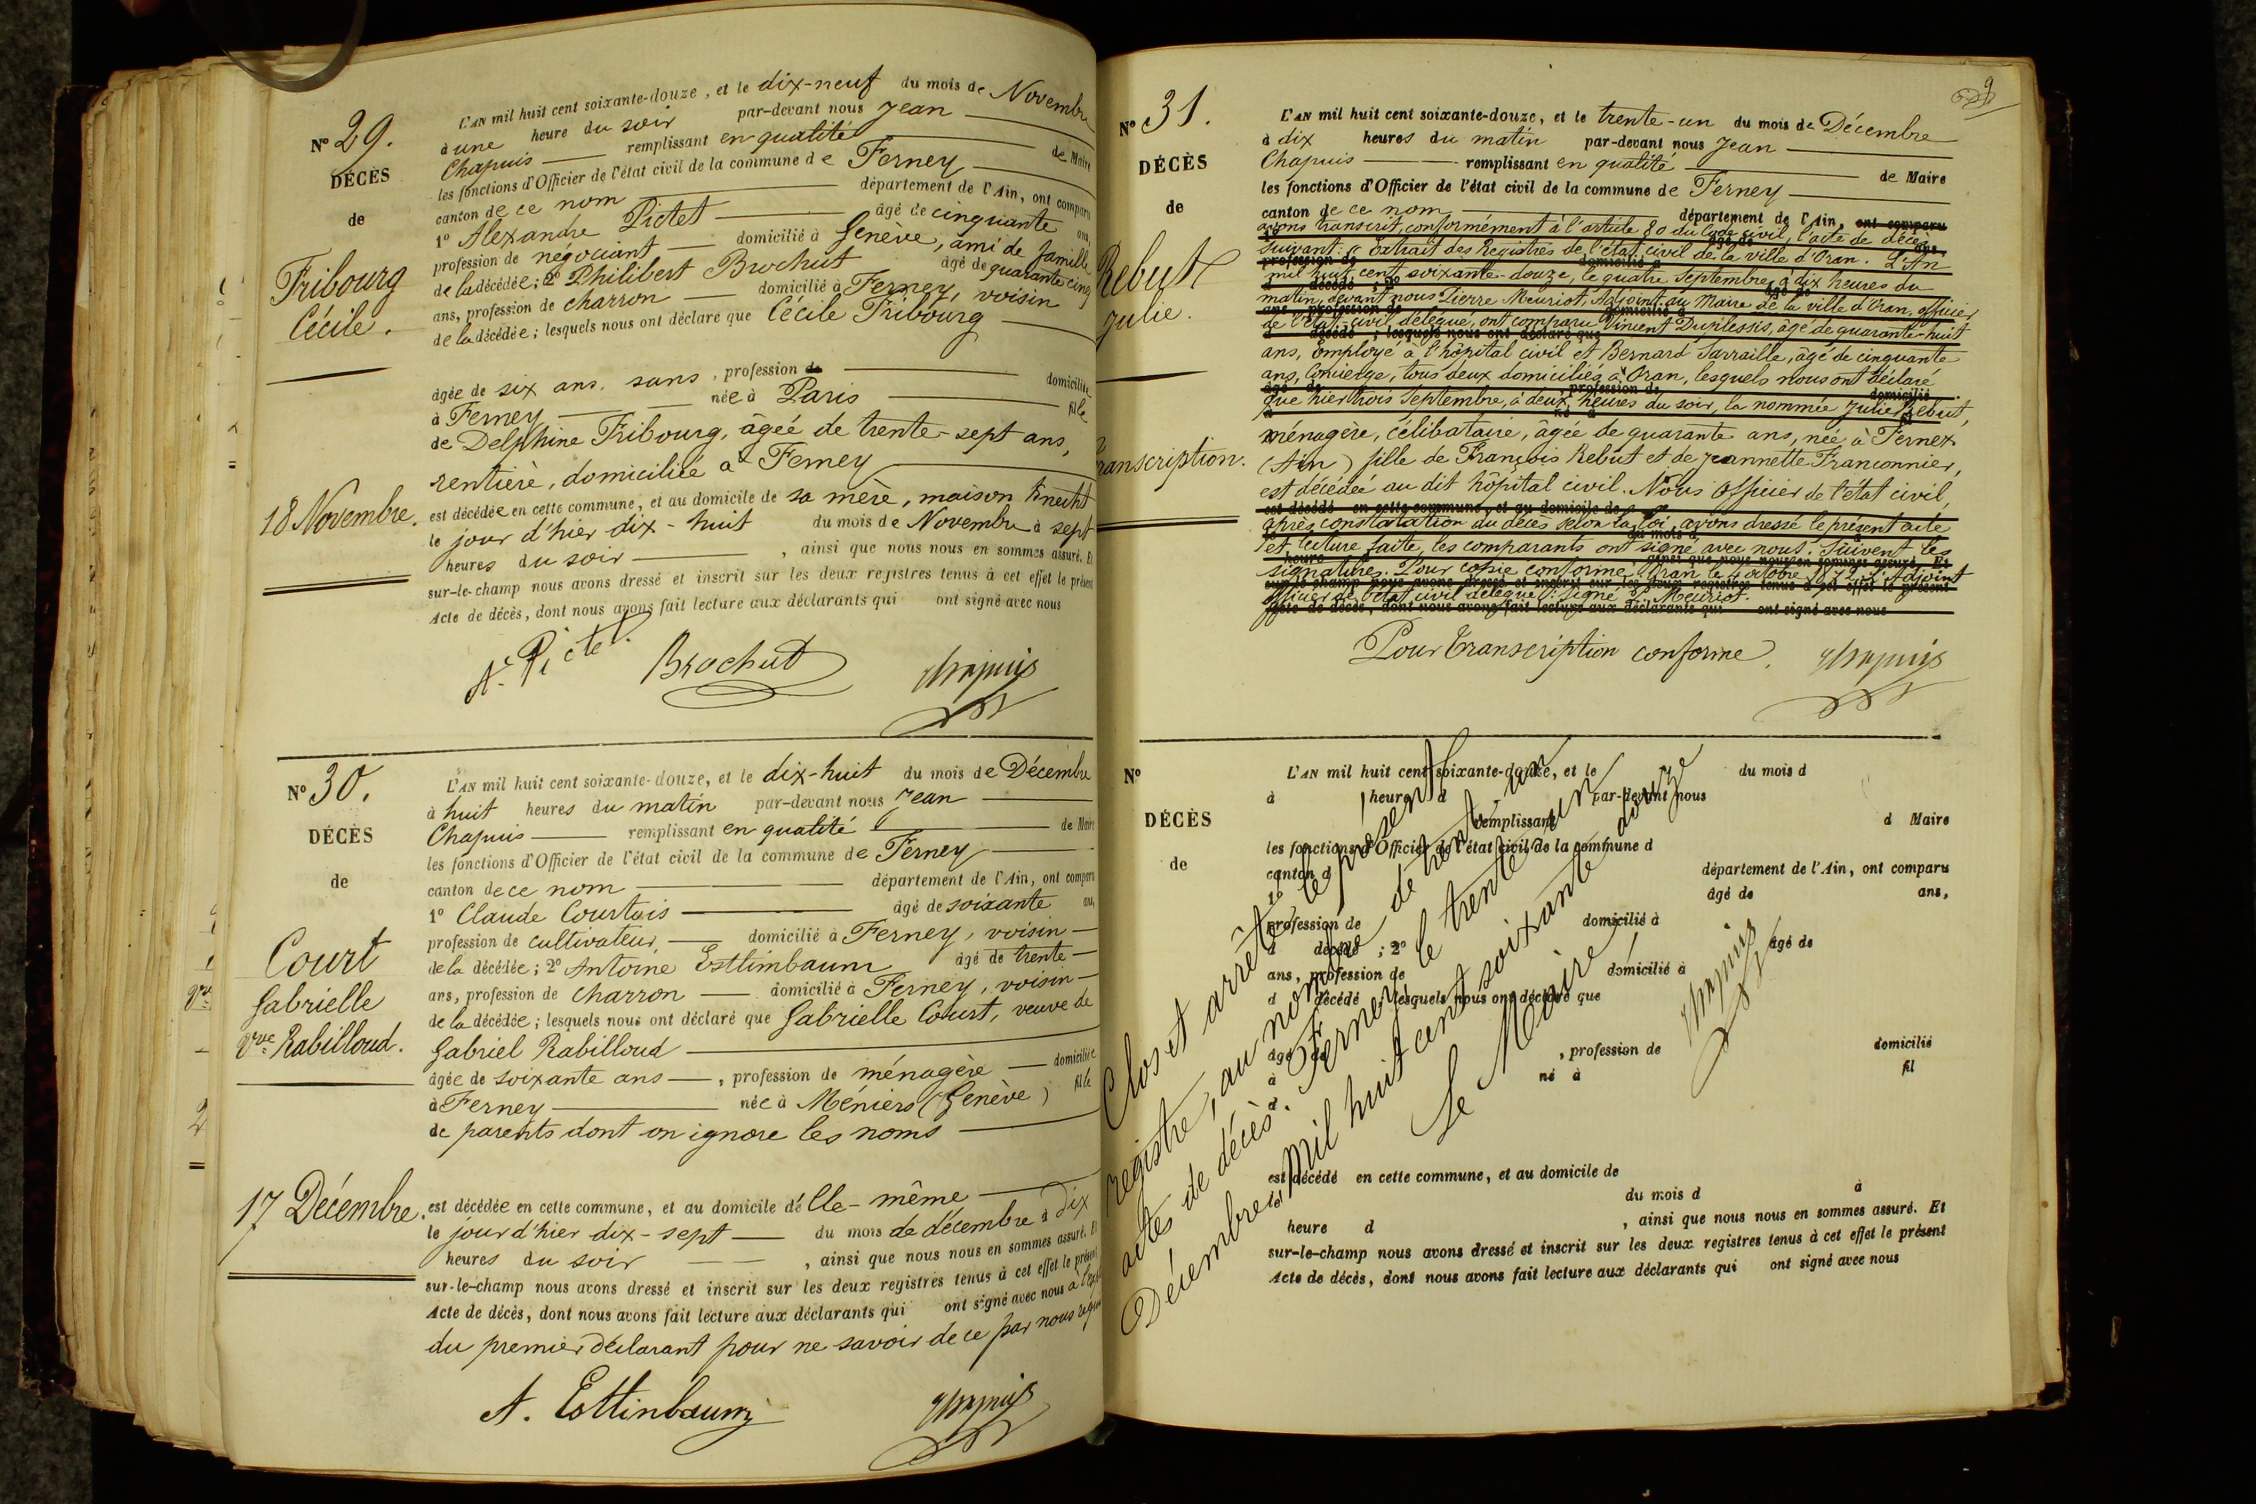 N° 29.
DÉCÈS
de
Fribourg
Cécile.
18 Novembre.
L'AN mil huit cent soixante-douze, et le dix-neuf du mois de Novembre
à une heure du soir par-devant nous Jean
Chapuis remplissant en qualité de Maire
les fonctions d'Officier de l'état civil de la commune de Ferney
canton de ce nom département de l'Ain, ont comparu
1° Alexandre Pictet âgé de cinquante ans,
profession de négociant domicilié à Genève, ami de famille
de la décédée; 2° Philibert Brochut âgé de quarante cinq
ans, profession de charron domicilié à Ferney, voisin
de la décédée; lesquels nous ont déclaré que Cécile Fribourg
âgée de six ans. sans, profession de domiciliée
à Ferney née à Paris fille
de Delphine Fribourg, âgée de trente-sept ans,
rentière, domiciliée à Ferney
est décédée en cette commune, et au domicile de sa mère, maison Knecht
le jour d'hier dix-huit du mois de Novembre à sept
heures du soir, ainsi que nous nous en sommes assuré. Et
sur-le-champ nous avons dressé et inscrit sur les deux registres tenus à cet effet le présent
Acte de décès, dont nous avons fait lecture aux déclarants qui ont signé avec nous
A. Pictet. Brochut Chapuis
N° 30.
DÉCÈS
de
Court
Gabrielle
Vve Rabilloud.
17 Décembre.
L'AN mil huit cent soixante-douze, et le dix-huit du mois de Décembre
à huit heures du matin par-devant nous Jean
Chapuis remplissant en qualité de Maire
les fonctions d'Officier de l'état civil de la commune de Ferney
canton de ce nom département de l'Ain, ont comparu
1° Claude Courtois âgé de soixante ans,
profession de cultivateur domicilié à Ferney, voisin
de la décédée; 2° Antoine Esttimbaum âgé de trente
ans, profession de charron domicilié à Ferney, voisin
de la décédée; lesquels nous ont déclaré que Gabrielle Court, veuve de
Gabriel Rabilloud
âgée de soixante ans, profession de ménagère domiciliée
à Ferney née à Méniers (Genève) fille
de parents dont on ignore les noms
est décédée en cette commune, et au domicile d'elle-même
le jour d'hier dix-sept du mois de décembre à dix
heures du soir, ainsi que nous nous en sommes assuré. Et
sur-le-champ nous avons dressé et inscrit sur les deux registres tenus à cet effet le présent
Acte de décès, dont nous avons fait lecture aux déclarants qui ont signé avec nous à
du premier déclarant pour ne savoir de ce par nous
A. Esttinbaum Chapuis
9
N° 31.
DÉCÈS
de
Rebut
Julie.
Transcription.
L'AN mil huit cent soixante-douze, et le trente-un du mois de Décembre
à dix heures du matin par-devant nous Jean
Chapuis remplissant en qualité de Maire
les fonctions d'Officier de l'état civil de la commune de Ferney
canton de ce nom département de l'Ain, ont comparu
avons transcrit, conformément à l'article 80 du Code civil, l'acte de décès
suivant: "Extrait des Registres de l'état civil de la ville d'Oran. L'An
mil huit cent soixante-douze, le quatre Septembre, à dix heures du
matin, devant nous Pierre Meuriot, Adjoint au Maire de la ville d'Oran, officier
de l'état-civil délégué, ont comparu Vincent Duplessis, âgé de quarante-huit
ans, employé à l'hôpital civil et Bernard Sarraille, âgé de cinquante
ans, Concierge, tous deux domiciliés à Oran, lesquels nous ont déclaré
que hier trois Septembre, à deux heures du soir, la nommée Julie Rebut,
ménagère, célibataire, âgée de quarante ans, née à Fernex
(Ain) fille de François Rebut et de Jeannette Franconnier,
est décédée au dit hôpital civil. Nous officier de l'état civil,
après constatation du décès selon la loi, avons dressé le présent acte
et, lecture faite, les comparants ont signé avec nous. Suivent les
signatures. Pour copie conforme. Oran le 4 octobre 1872. L'Adjoint
officier de l'état civil délégué: Signé P. Meuriot.
Pour transcription conforme. Chapuis
N°
DÉCÈS
de
L'AN mil huit cent soixante-douze, et le du mois d
à heure d par-devant nous
remplissant d Maire
les fonctions d'Officier de l'état civil de la commune d
canton d département de l'Ain, ont comparu
1° âgé de ans,
profession de domicilié à
d décédé ; 2° âgé de
ans, profession de domicilié à
d décédé ; lesquels nous ont déclaré que
âgé de , profession de domicilié
à né à fil
d
est décédé en cette commune, et au domicile de
le du mois d à
heure d , ainsi que nous nous en sommes assuré. Et
sur-le-champ nous avons dressé et inscrit sur les deux registres tenus à cet effet le présent
Acte de décès, dont nous avons fait lecture aux déclarants qui ont signé avec nous
Clos et arrêté le présent
registre, au nombre de trente un
actes de décès. Ferney le trente un
Décembre Mil huit cent soixante douze
Le Maire
Chapuis